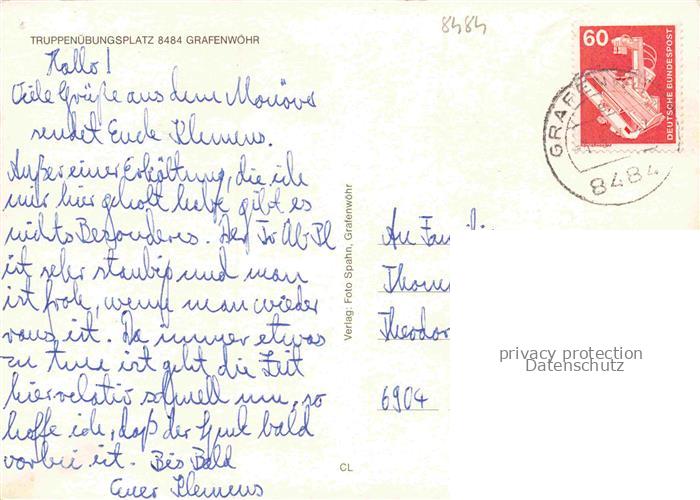 8484
TRUPPENÜBUNGSPLATZ 8484 GRAFENWÖHR
Hallo!
Viele Grüße aus dem Manöver
sendet Euch Klemens.
Außer einer Erkältung, die ich
mir hier geholt habe gibt es
nichts Besonderes. Der TrÜbPl
ist sehr staubig und man
ist froh, wenn man wieder
raus ist. Da immer etwas
zu tun ist geht die Zeit
hier relativ schnell um, so
hoffe ich, daß der Spuk bald
vorbei ist. Bis Bald
Euer Klemens
Verlag: Foto Spahn, Grafenwöhr
CL
60
DEUTSCHE BUNDESPOST
8484
An Fam
Thom
Theodor
6904
privacy protection
Datenschutz